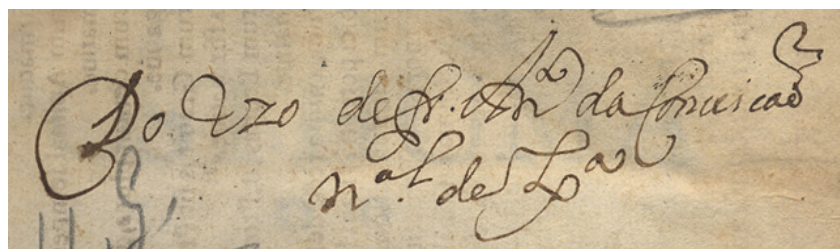 Do Uzo de fr. Anº da Conceicaõ
n.ᵃˡ de Lxª